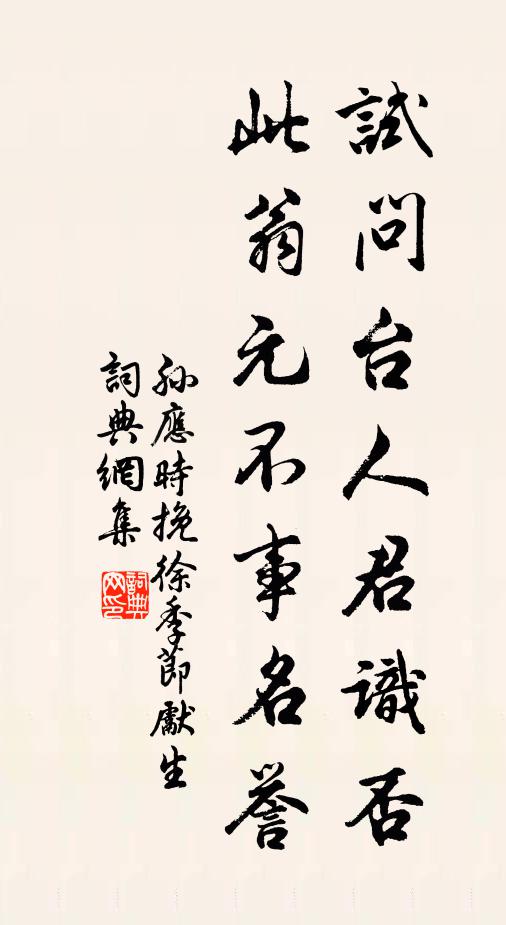 試問台人君識否
此翁元不事名譽
孫應時挽徐季節獻生
詞典網集
詞典
网印